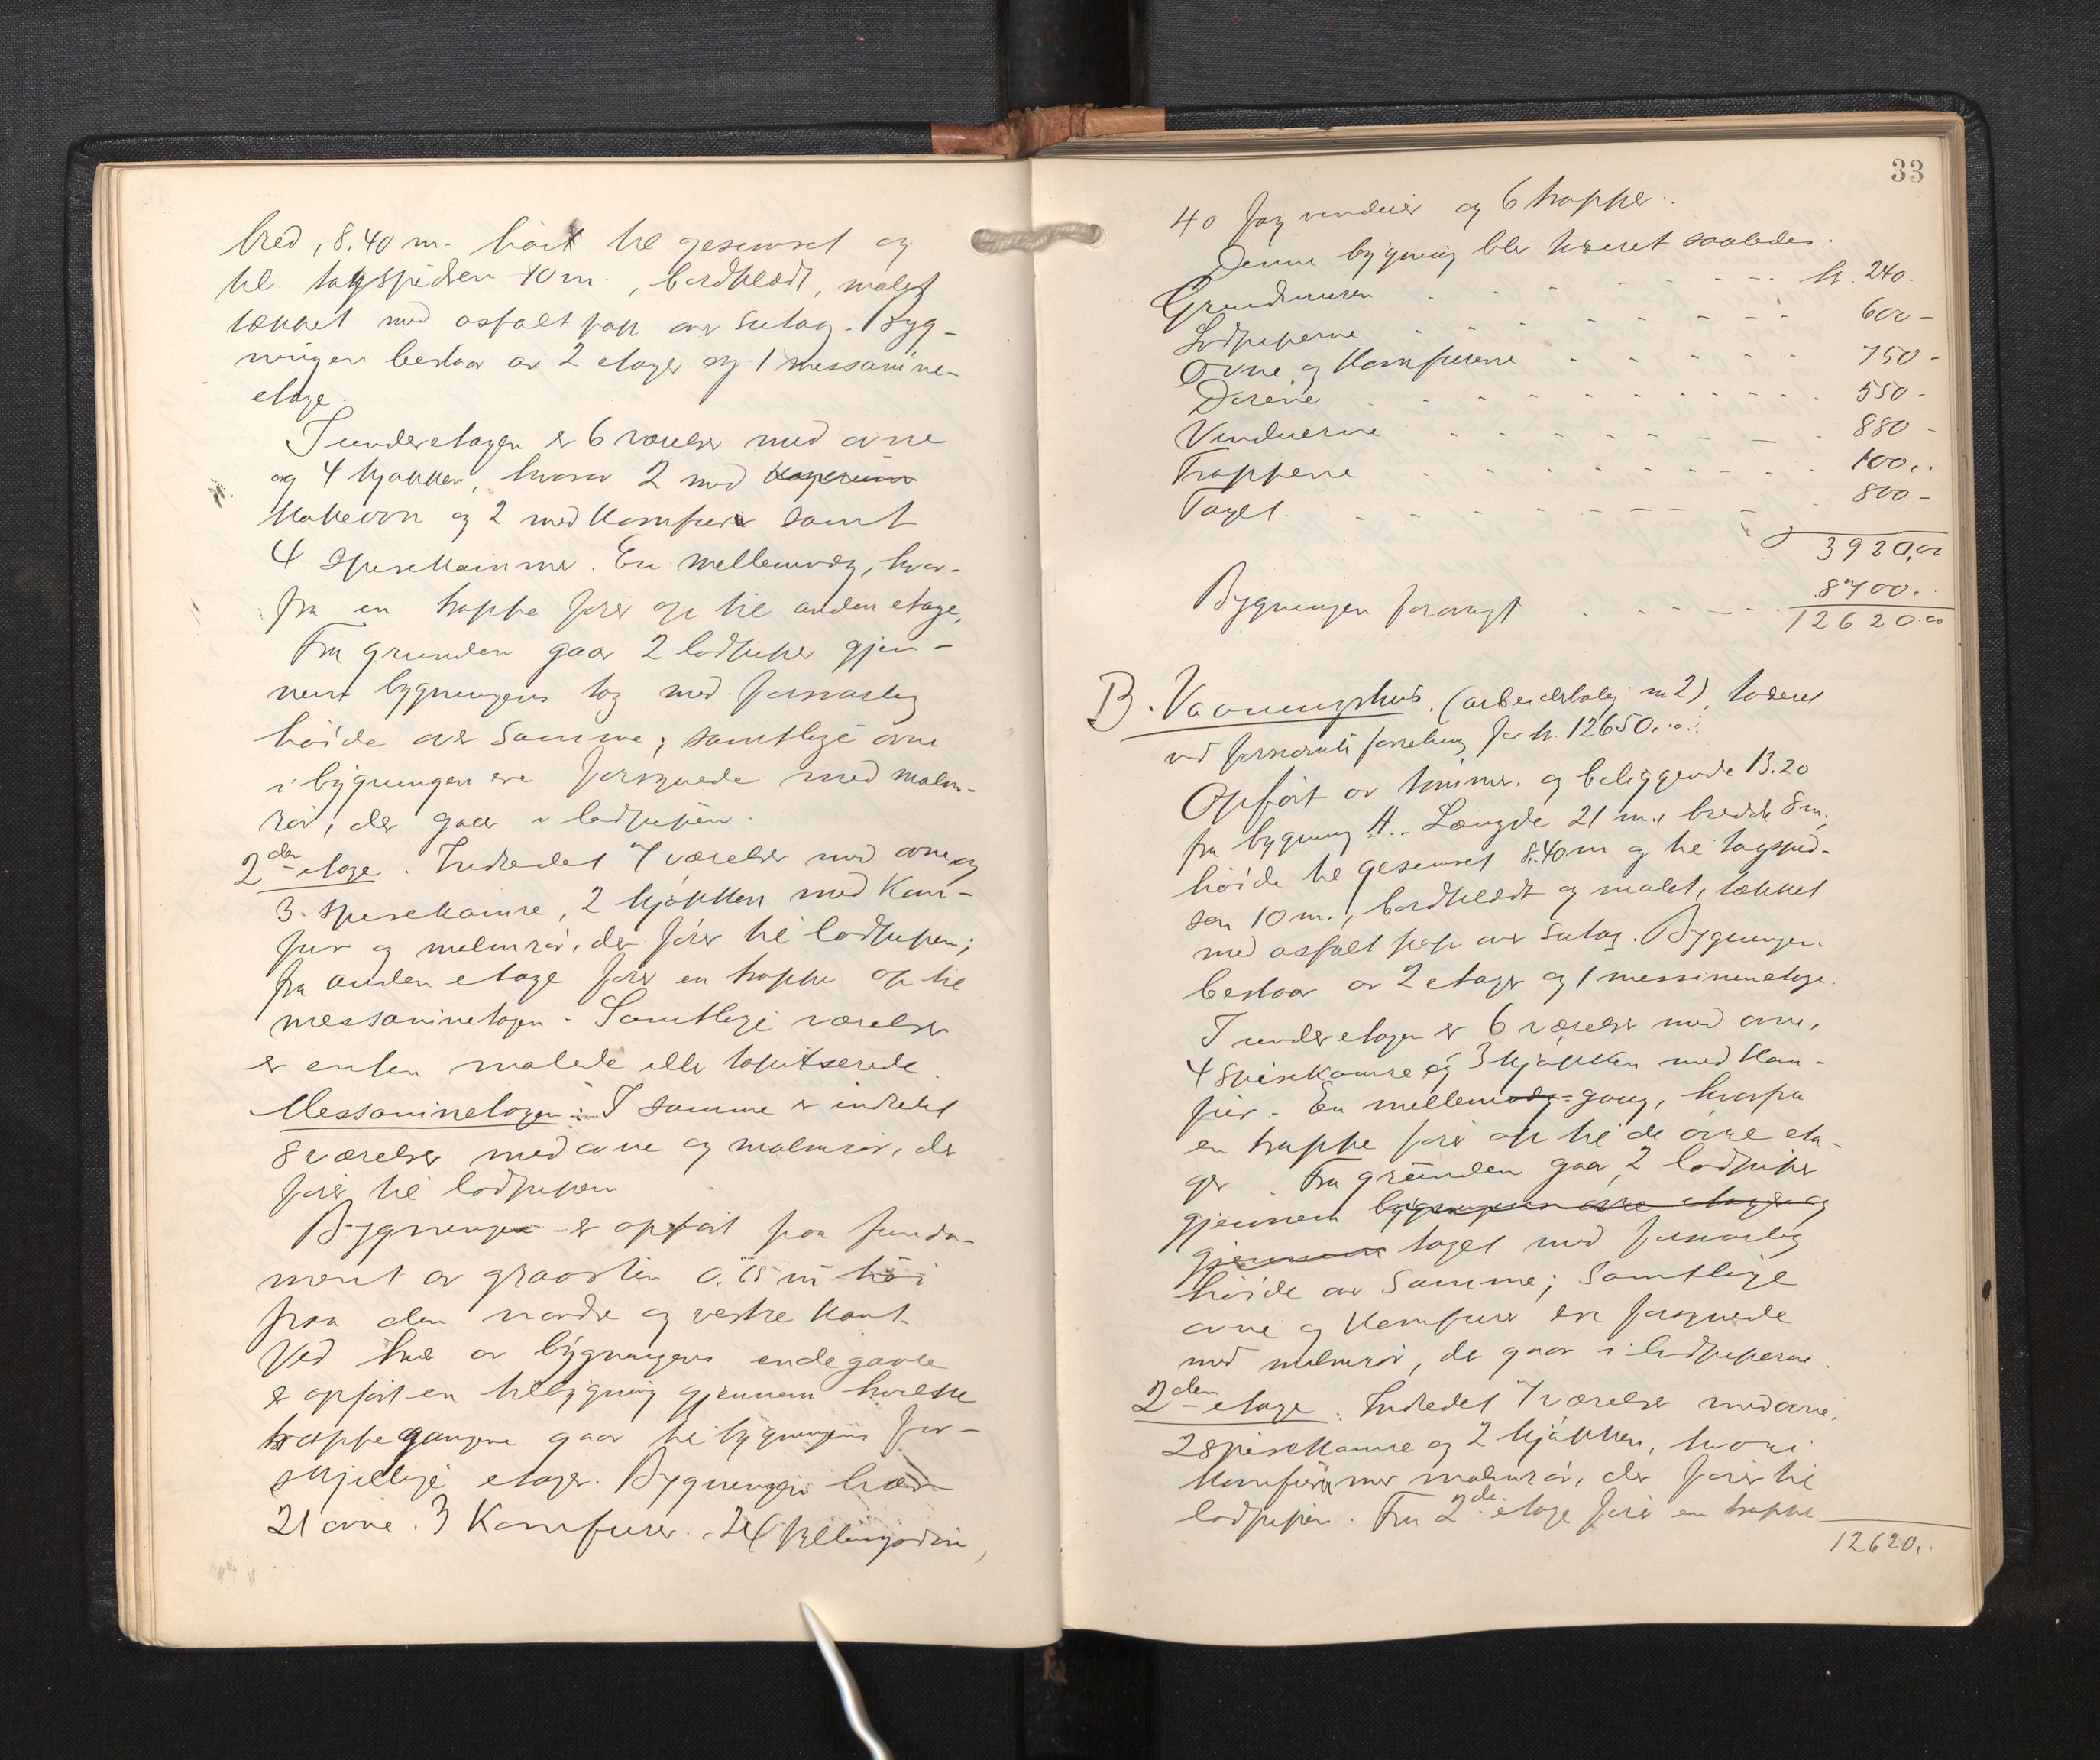 bred, 8,40 m. høit til gesemset og
til tagspidsen 10 m., bordklædt, malet
tækket med asfaltpap over sutag. Byg-
ningen bestaar av 2 etager og 1 messanine-
etage.
I underetagen er 6 værelser med ovne
og 4 kjøkken, hvorav 2 med
kokeovn og 2 med komfurer samt
4 spisekammer. En mellemvæg, hvor-
fra en trappe fører op til anden etage,
Fra grunden gaar 2 lodpiper gjen-
nem bygningens tag med forsvarlig
høide over samme; samtlige ovne
i bygningen ere forsynede med malm-
rør, der gaar i lodpipen.
2den etage. Indredet 7 værelser med ovne og
3 spisekamre, 2 kjøkken med kom-
fur og malmrør, der fører til lodpipen;
fra anden etage fører en trappe op til
messaninetagen. Samtlige værelser
er enten malede eller tapetserede.
Messaninetagen: I samme er indredet
8 værelser med ovne og malmrør, der
fører til lodpipen
Bygningen er opført paa funda-
ment av graasten 0.75 m høi
paa den nordre og vestre kant.
Ved hver av bygningens endegavle
er opført en tilbygning gjennem hvilke
trappegangene gaar til bygningens for-
skjellige etager. Bygningen har
21 ovne. 3 Komfurer. 24 fyllingsdøre,
33
40 fag vinduer og 6 trapper.
Denne bygning blev taxeret saaledes:
Grundmuren kr. 240.-
Lodpiperne 600-
Ovne og Komfurene 750-
Dørene 550-
Vinduerne 880-
Trapperne 100..
Taget 800-
3920,00
Bygningen forøvrigt 8700.
12620.00
B. Vaaningshus. (arbeiderbolig nr 2), taxeret
ved forrige forretning for kr. 12650.
Opført av tømmer og beliggende 13.20
fra bygning A. Længde 21 m., bredde 8 m.,
høide til gesemset 8.40 m og til tagspid-
sen 10 m., bordklædt og malet, tækket
med asfalt pap over sutag. Bygningen
bestaar av 2 etager og 1 messaninetage.
I underetagen er 6 værelser med ovne,
4 spisekamre og 3 kjøkken med kom-
fur. En mellemvæg-gang, hvorfra
en trappe fører op til de øvre eta-
ger. Fra grunden gaar 2 lodpiper
gjennem bygningens øvre etager og
gjennem taget med forsvarlig
høide over samme; Samtlige
ovne og Komfurer ere forsynede
med malmrør, der gaar i lodpiperne.
2den etage. Indredet 7 værelser med ovne,
2 spisekamre og 2 kjøkken, hvori
komfurer med malmrør, der fører til
lodpipen. Fra 2de etage fører en trappe
12620..